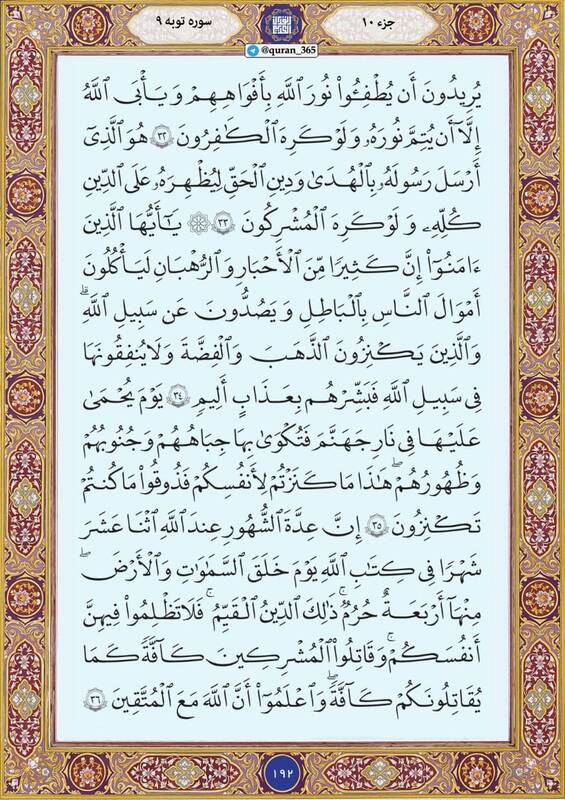 جزء ۱۰
سوره توبه ۹
@quran_365
يُرِيدُونَ أَن يُطْفِـُٔوا۟ نُورَ ٱللَّهِ بِأَفْوَٰهِهِمْ وَيَأْبَى ٱللَّهُ
إِلَّآ أَن يُتِمَّ نُورَهُۥ وَلَوْ كَرِهَ ٱلْكَٰفِرُونَ ۝٣٢ هُوَ ٱلَّذِىٓ
أَرْسَلَ رَسُولَهُۥ بِٱلْهُدَىٰ وَدِينِ ٱلْحَقِّ لِيُظْهِرَهُۥ عَلَى ٱلدِّينِ
كُلِّهِۦ وَلَوْ كَرِهَ ٱلْمُشْرِكُونَ ۝٣٣ ۞ يَٰٓأَيُّهَا ٱلَّذِينَ
ءَامَنُوٓا۟ إِنَّ كَثِيرًا مِّنَ ٱلْأَحْبَارِ وَٱلرُّهْبَانِ لَيَأْكُلُونَ
أَمْوَٰلَ ٱلنَّاسِ بِٱلْبَٰطِلِ وَيَصُدُّونَ عَن سَبِيلِ ٱللَّهِ ۗ
وَٱلَّذِينَ يَكْنِزُونَ ٱلذَّهَبَ وَٱلْفِضَّةَ وَلَا يُنفِقُونَهَا
فِى سَبِيلِ ٱللَّهِ فَبَشِّرْهُم بِعَذَابٍ أَلِيمٍ ۝٣٤ يَوْمَ يُحْمَىٰ
عَلَيْهَا فِى نَارِ جَهَنَّمَ فَتُكْوَىٰ بِهَا جِبَاهُهُمْ وَجُنُوبُهُمْ
وَظُهُورُهُمْ ۖ هَٰذَا مَا كَنَزْتُمْ لِأَنفُسِكُمْ فَذُوقُوا۟ مَا كُنتُمْ
تَكْنِزُونَ ۝٣٥ إِنَّ عِدَّةَ ٱلشُّهُورِ عِندَ ٱللَّهِ ٱثْنَا عَشَرَ
شَهْرًا فِى كِتَٰبِ ٱللَّهِ يَوْمَ خَلَقَ ٱلسَّمَٰوَٰتِ وَٱلْأَرْضَ
مِنْهَآ أَرْبَعَةٌ حُرُمٌ ۚ ذَٰلِكَ ٱلدِّينُ ٱلْقَيِّمُ ۚ فَلَا تَظْلِمُوا۟ فِيهِنَّ
أَنفُسَكُمْ ۚ وَقَٰتِلُوا۟ ٱلْمُشْرِكِينَ كَآفَّةً كَمَا
يُقَٰتِلُونَكُمْ كَآفَّةً ۚ وَٱعْلَمُوٓا۟ أَنَّ ٱللَّهَ مَعَ ٱلْمُتَّقِينَ ۝٣٦
۱۹۲